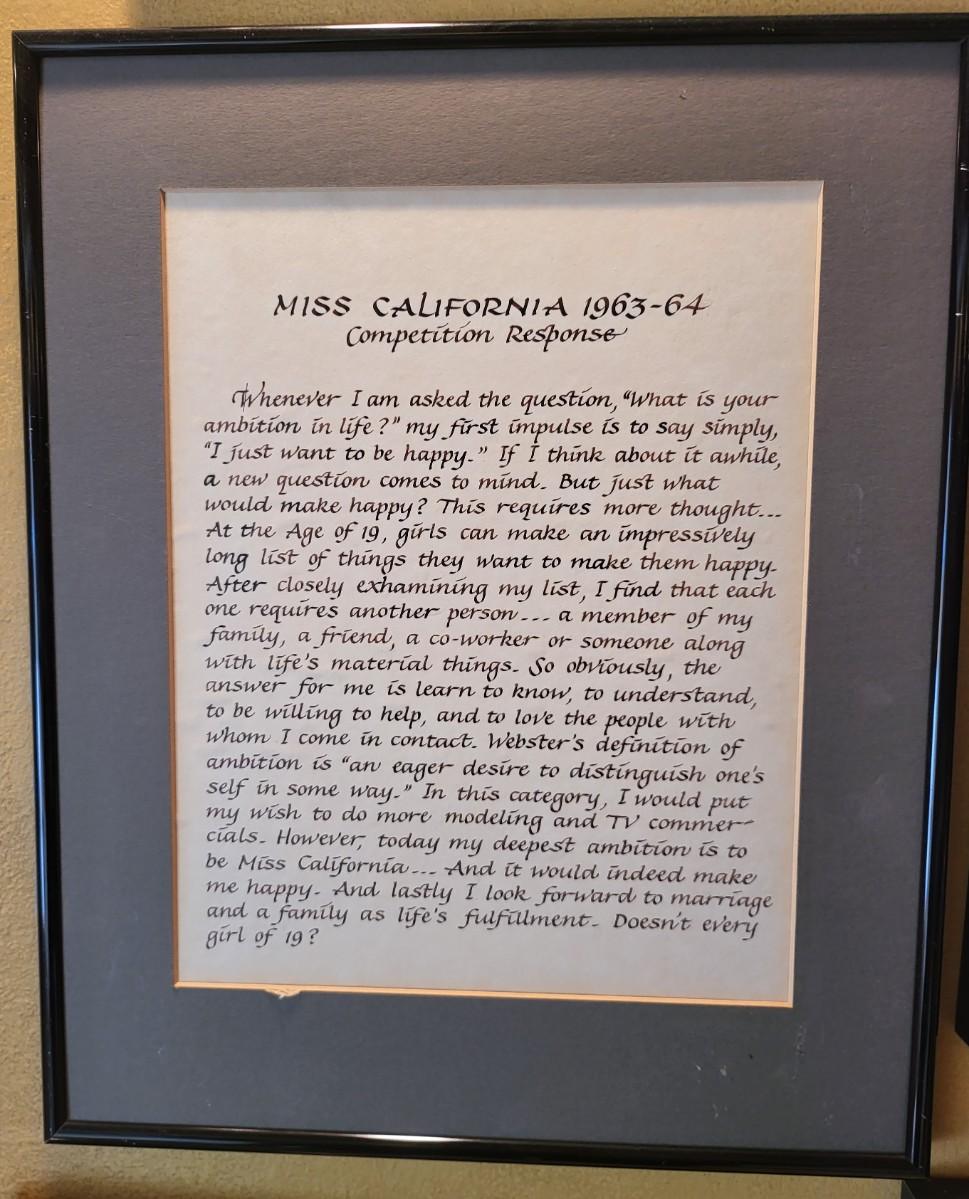 MISS CALIFORNIA 1963-64
Competition Response
Whenever I am asked the question, "What is your
ambition in life?" my first impulse is to say simply,
"I just want to be happy." If I think about it awhile,
a new question comes to mind. But just what
would make happy? This requires more thought...
At the Age of 19, girls can make an impressively
long list of things they want to make them happy.
After closely exhamining my list, I find that each
one requires another person... a member of my
family, a friend, a co-worker or someone along
with life's material things. So obviously, the
answer for me is learn to know, to understand,
to be willing to help, and to love the people with
whom I come in contact. Webster's definition of
ambition is "an eager desire to distinguish one's
self in some way." In this category, I would put
my wish to do more modeling and TV commer-
cials. However, today my deepest ambition is to
be Miss California... And it would indeed make
me happy. And lastly I look forward to marriage
and a family as life's fulfillment. Doesn't every
girl of 19?